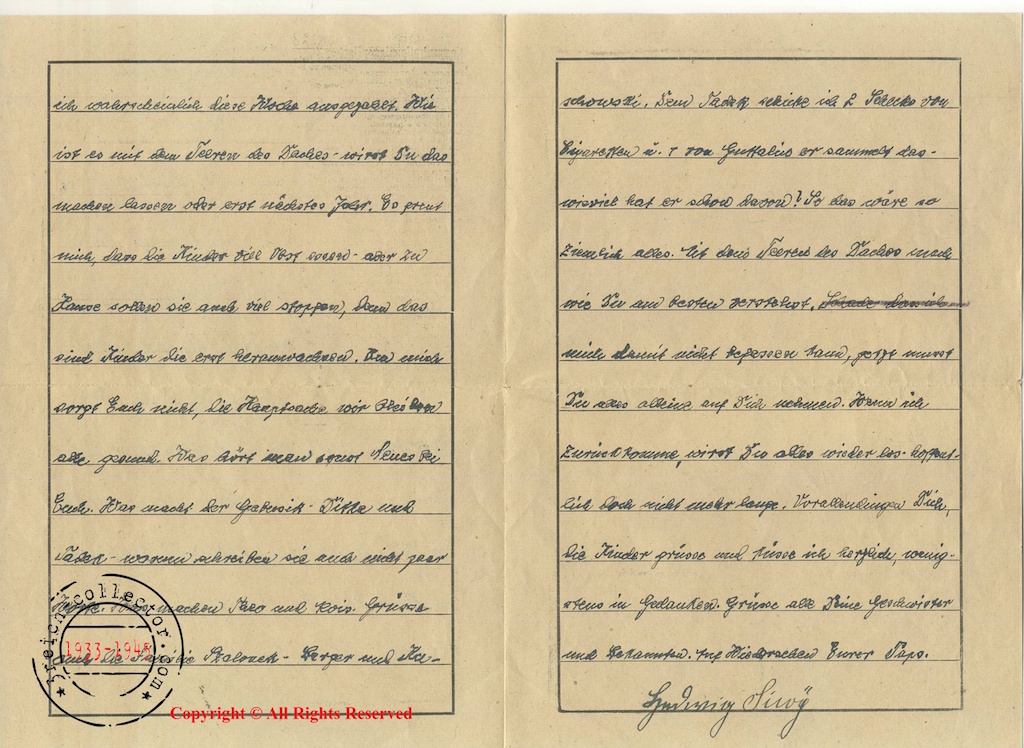 ich wahrscheinlich diese Woche ausgezahlt. Wie
ist es mit dem Teeren des Daches - wirst Du das
machen lassen oder erst nächstes Jahr. Es freut
mich, dass die Kinder viel Obst essen - aber zu
Hause sollen sie auch viel stoppen, denn das
sind Kinder die erst heranwachsen. Um mich
sorgt Euch nicht, die Hauptsache wir bleiben
alle gesund. Was hört man sonst Neues bei
Euch. Was macht der - Ditta und
Tadek - warum schreiben sie auch nicht paar
Worte. Was machen Theo und Lois. Grüsse
auch die Familie - Berger und Ka-
schowski. Dem Tadek schicke ich 2 von
Cigaretten u. 1 von er sammelt das -
wieviel hat er schon davon? So das wäre so
ziemlich alles. Mit dem Teeren des Daches mach
wie Du am besten verstehst. Schade dass ich
mich damit nicht befassen kann, jetzt musst
Du alles alleine auf Dich nehmen. Wenn ich
zurückkomme, wirst Du alles wieder los - hoffent-
lich doch nicht mehr lange. Vorallendingen Dich,
die Kinder grüsse und küsse ich herzlich, wenig-
stens in Gedanken. Grüsse alle Deine Geschwister
und Bekannten. Auf Wiedersehen Eurer Papa.
Ludwig
3reichcollector.com
1933-1945
Copyright © All Rights Reserved